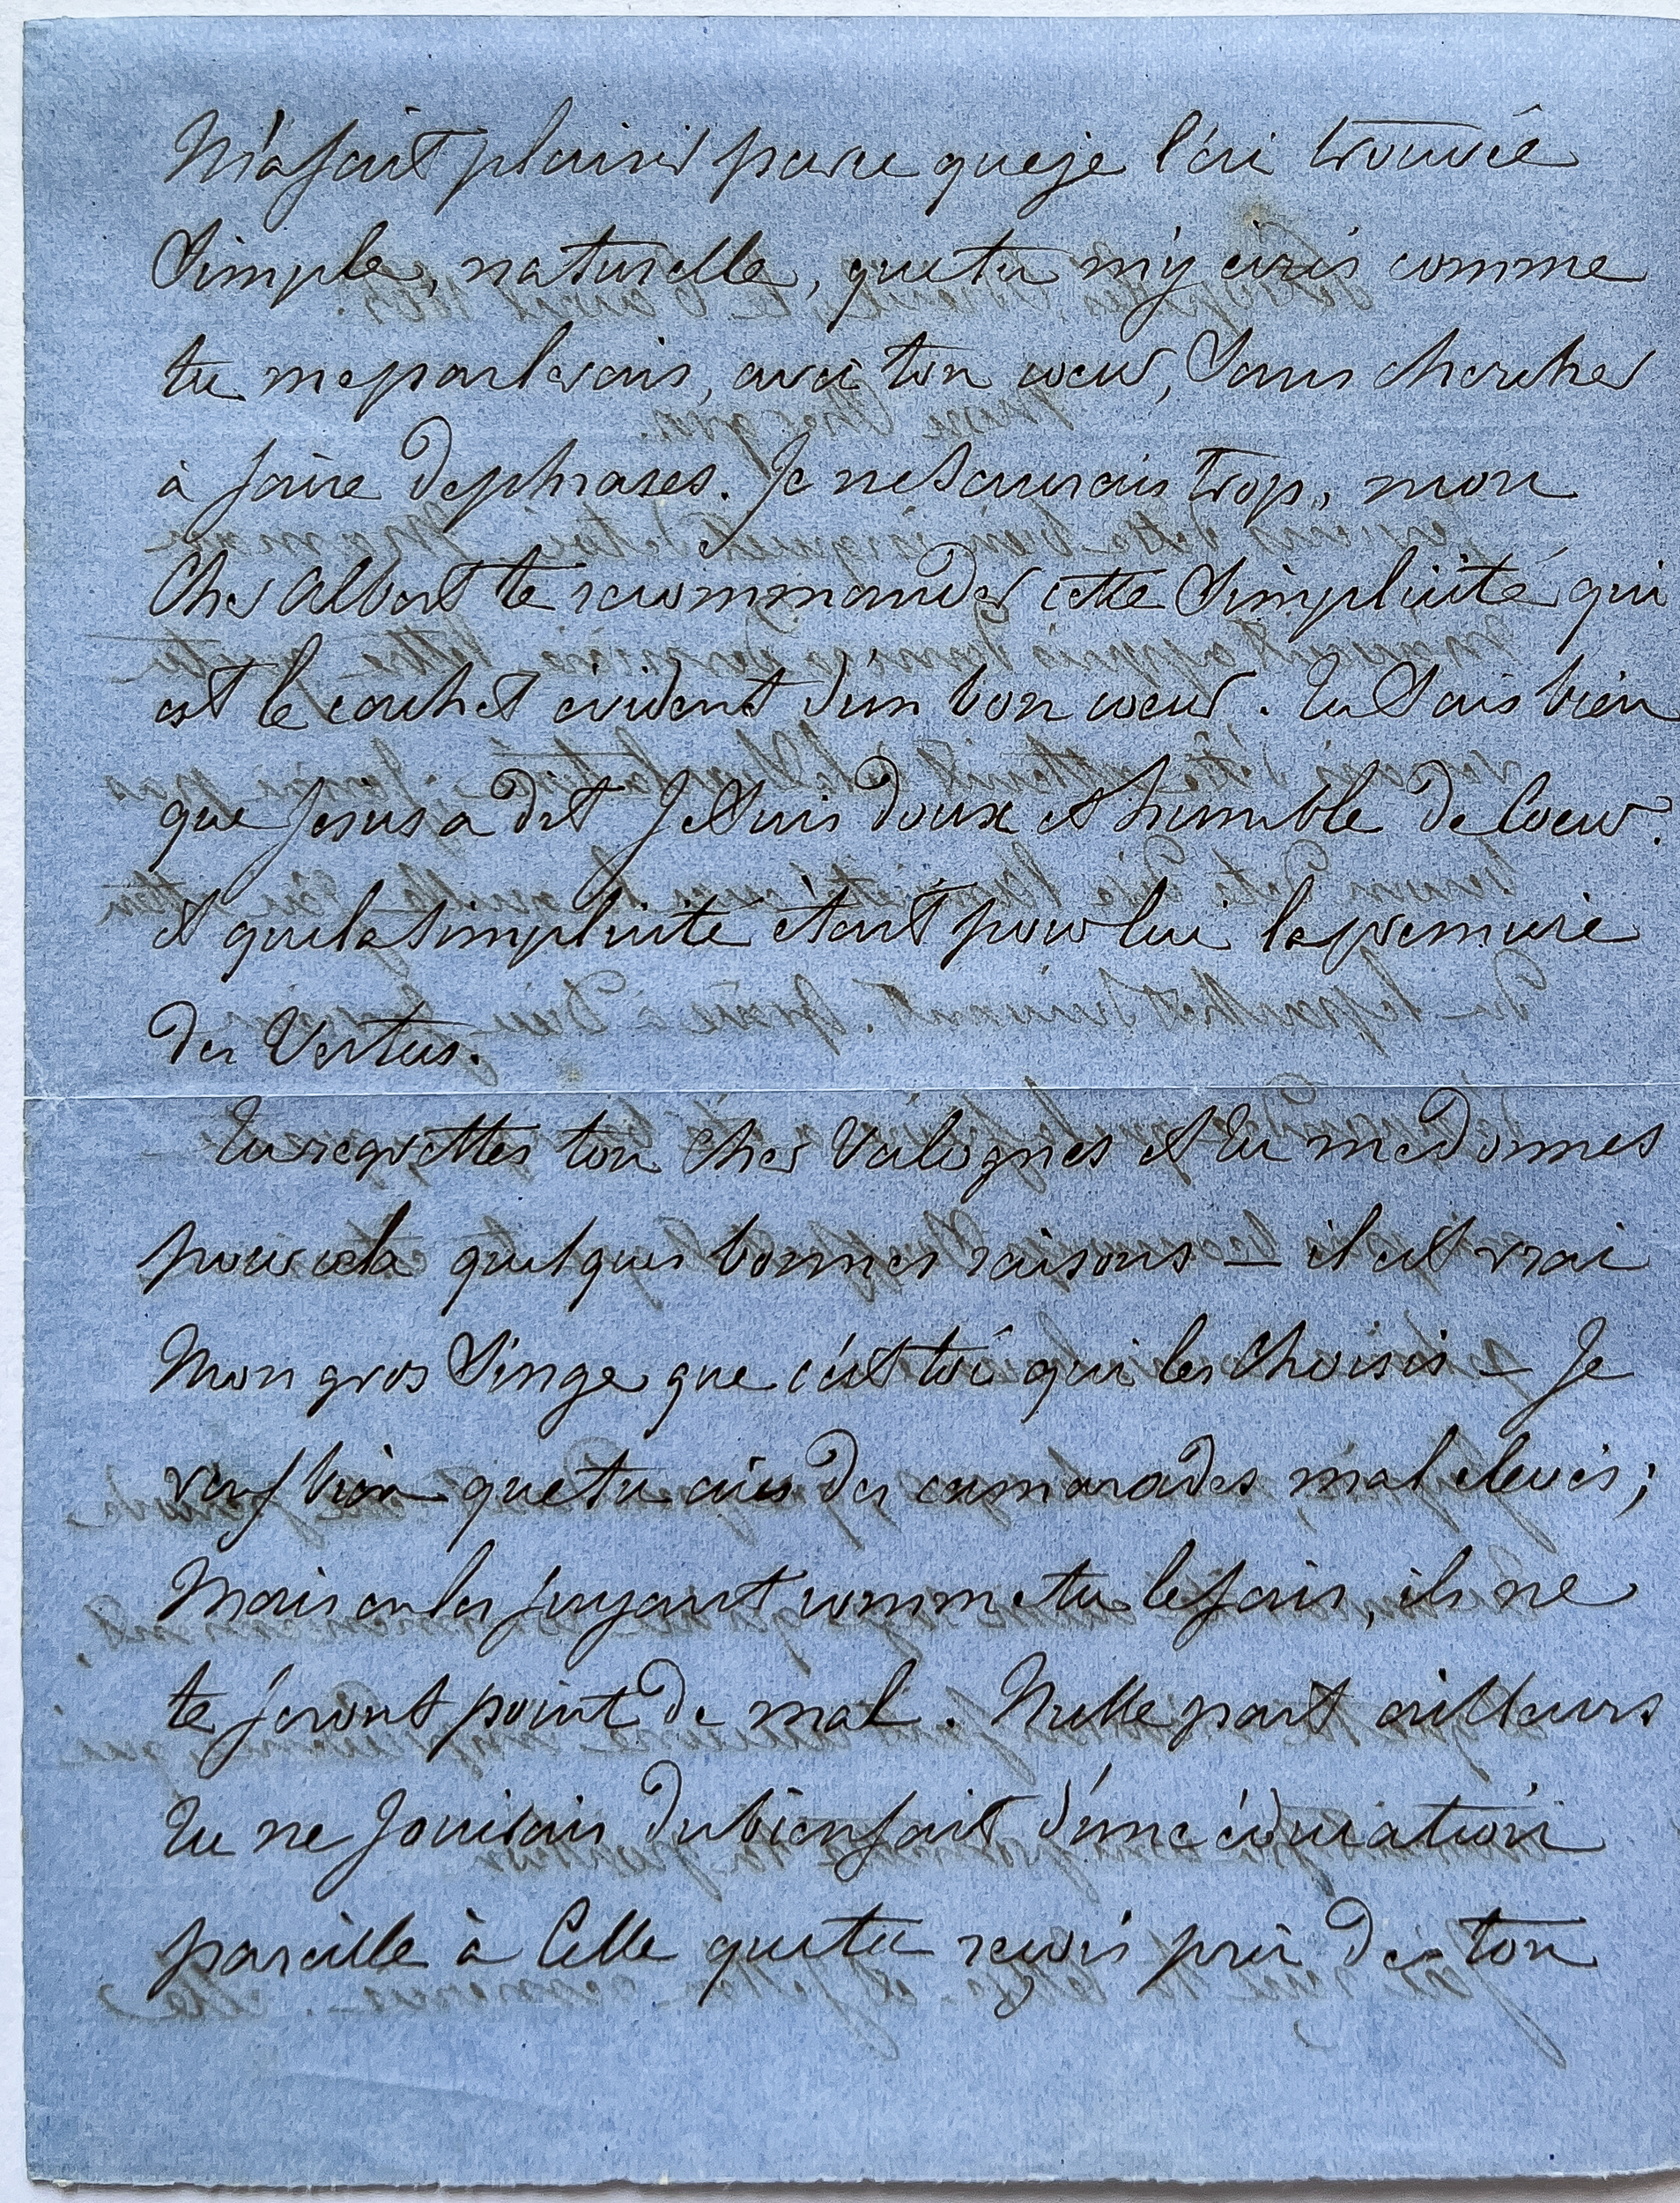 M'a fait plaisir parce que je l'ai trouvée
Simple, naturelle, que tu m'y écris comme
tu me parlerais, avec ton coeur, Sans chercher
à faire de phrases. Je ne Saurais trop, mon
Cher Albert te recommander cette Simplicité qui
est le cachet évident d'un bon coeur. Tu Sais bien
que Jesus a dit Je Suis doux et humble de Coeur.
et que la Simplicité était pour lui la premiere
des Vertus.
Tu regrettes ton cher Valognes et tu me donnes
pour cela quelques bonnes raisons — il est vrai
Mon gros Singe que c'est toi qui les choisis — Je
veux bien que tu aies des camarades mal élevés;
Mais en les jugeant comme tu le fais, ils ne
te feront point de mal. Nulle part ailleurs
Tu ne Jouirais du bienfait d'une éducation
pareille à Celle que tu reçois près de ton